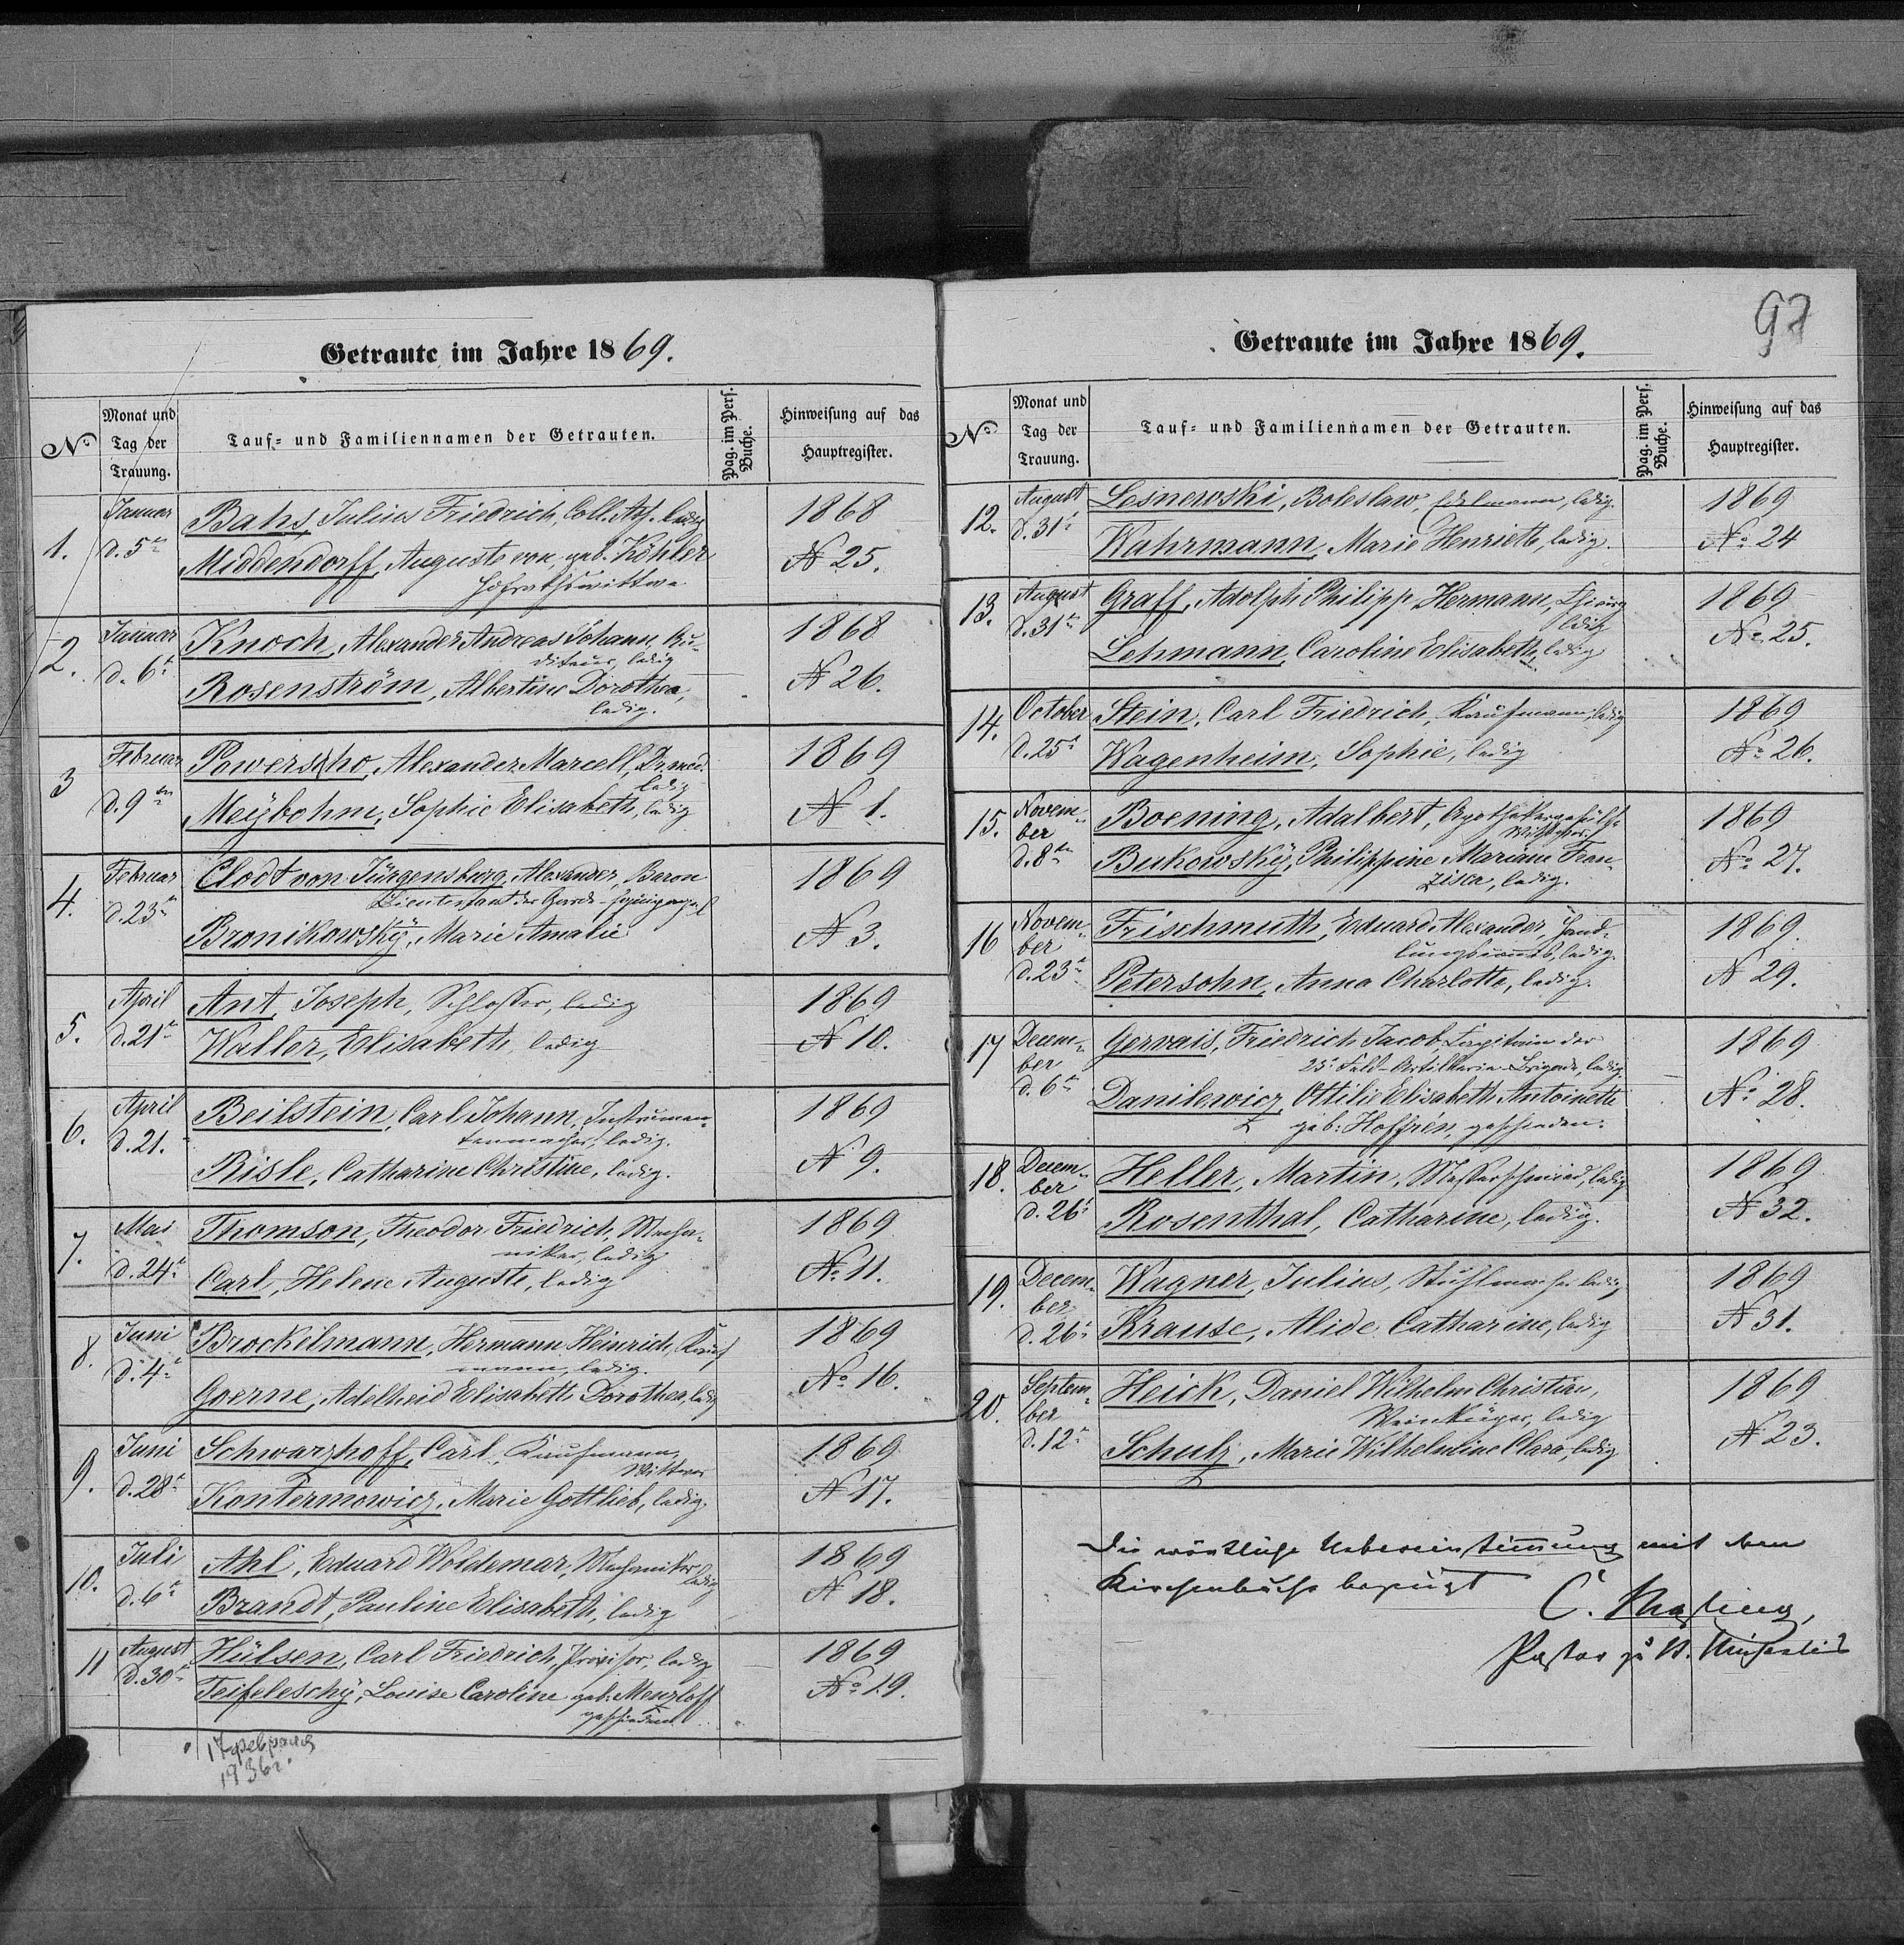 Getraute im Jahre 1869.
No.
Monat und Tag der Trauung.
Tauf- und Familiennamen der Getrauten.
Pag. im Pers. Buche.
Hinweisung auf das Hauptregister.
1. Januar d. 5ten Bahs, Julius Friedrich, Coll. Ass. ledig 1868
Middendorff, Auguste von, geb. Köhler N 25.
Hofrathswittwe
2. Januar d. 6t Knoch, Alexander Andreas Johann, Au- 1868
diteur, ledig
Rosenström, Albertine Dorothea, N 26.
ledig.
3 Februar d. 9ten Powersho, Alexander Marcell, Dr. med. 1869
ledig
Meÿbohm, Sophie Elisabeth, ledig N 1.
4. Februar d. 23t Clodt von Jürgensburg, Alexander, Baron 1869
Lieutenant der Garde-
Bronikowskÿ, Marie Amalie N 3.
5. April d. 21t Ant, Joseph, Schlosser, ledig 1869
Waller, Elisabeth, ledig N 10.
6. April d. 21. Beilstein, Carl Johann, Instrumen- 1869
tenmacher, ledig.
Risle, Catharine Christine, ledig. N 9.
7. Mai d. 24t Thomson, Theodor Friedrich, Mecha- 1869
niker, ledig
Carl, Helene Auguste, ledig No. 11.
8. Juni d. 4t Brockelmann, Hermann Heinrich, Kauf- 1869
mann, ledig.
Goerne, Adelheid Elisabeth Dorothea, ledig No. 16.
9. Juni d. 28t Schwarzhoff, Carl, Kaufmann, 1869
Wittwer
Kontermowicz, Marie Gottlieb, ledig. N 17.
10. Juli d. 6t Ahl, Eduard Woldemar, Mechaniker 1869
ledig
Brandt, Pauline Elisabeth, ledig N 18.
11 August d. 30t Hülsen, Carl Friedrich, Provisor, ledig 1869
Teifeleschÿ, Louise Caroline geb. Menzloff No. 19.
geschieden
17 февраля
1936г.
97
Getraute im Jahre 1869.
No.
Monat und Tag der Trauung.
Tauf- und Familiennamen der Getrauten.
Pag. im Pers. Buche.
Hinweisung auf das Hauptregister.
12. August d. 31t Lesnewski, Boleslaw, Edelmann, ledig. 1869
Wahrmann, Marie Henriette, ledig. No. 24
13. August d. 31t Graff, Adolph Philipp Hermann, 1869
ledig
Lehmann, Caroline Elisabeth, ledig No. 25.
14. October d. 25t Stein, Carl Friedrich, Kaufmann, ledig 1869
Wagenheim, Sophie, ledig No. 26.
15. November d. 8ten Boening, Adalbert, Apothekergehülfe 1869
Wittwer
Bukowskÿ, Philippine Mariane Fran- No. 27.
ziska, ledig.
16 November d. 23t Frischmuth, Eduard Alexander, Hand- 1869.
lungscommis, ledig.
Petersohn, Anna Charlotte, ledig. N 29.
17 December d. 6t Gervais, Friedrich Jacob, Capitain der 1869
25t Feld-Artillerie-Brigade, ledig.
Danilewicz, Ottilie Elisabeth Antoinette No. 28.
geb: Hoffrén, geschieden.
18. December d. 26t Heller, Martin, Messerschmied, ledig 1869
Rosenthal, Catharine, ledig. N 32.
19. December d. 26t Wagner, Julius, Stuhlmacher ledig 1869
Krause, Alide Catharine, ledig N 31.
20. September d. 12t Heick, Daniel Wilhelm Christian, 1869
Weinküper, ledig
Schulz, Marie Wilhelmine Clara, ledig N 23.
Die wörtliche Uebereinstimmung mit dem
Kirchenbuche bezeugt
C.
Pastor zu St. Michaelis